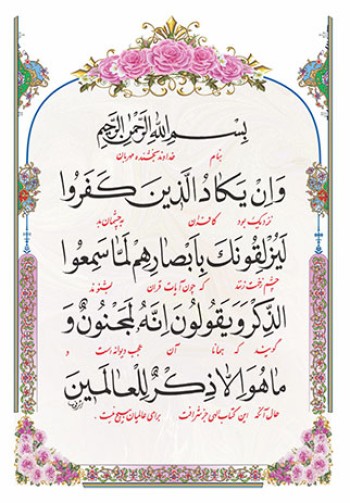 بِسْمِ اللهِ الرَّحْمٰنِ الرَّحِيمِ
بنام خداوند بخشنده مهربان
وَاِنْ يَكادُ الَّذينَ كَفَرُوا
نزدیک بود کافران بچشمان بد
لَيُزْلِقُونَكَ بِاَبْصارِهِمْ لَمّا سَمِعُوا
چشم زخمت زنند که چون آیات قران بشنوند
الذِّكْرَ وَيَقُولُونَ اِنَّهُ لَمَجْنُونٌ وَ
گویند که همانا آن عجب دیوانه است و
ما هُوَ اِلّا ذِكْرٌ لِلْعالَمينَ
حال آنکه این کتاب الهی جز شرافت برای عالمیان هیچ نیست .